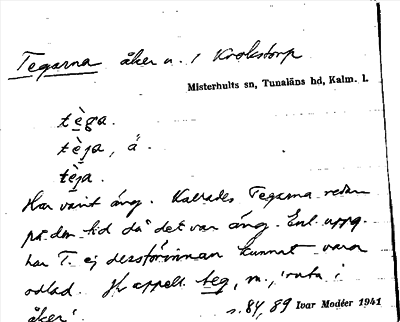 Tegarna åker n. i Krokstorp
Misterhults sn, Tunaläns hd, Kalm. l.
tèga.
tèja, ä̀.
tèja.
Har varit äng. Kallades Tegarna redan
på den tid då det var äng. Enl. uppg.
har T. ej dessförinnan kunnat vara
odlad. Jfr appell. teg, m., 'ruta i
åker'.
s. 84, 89 Ivar Modéer 1941